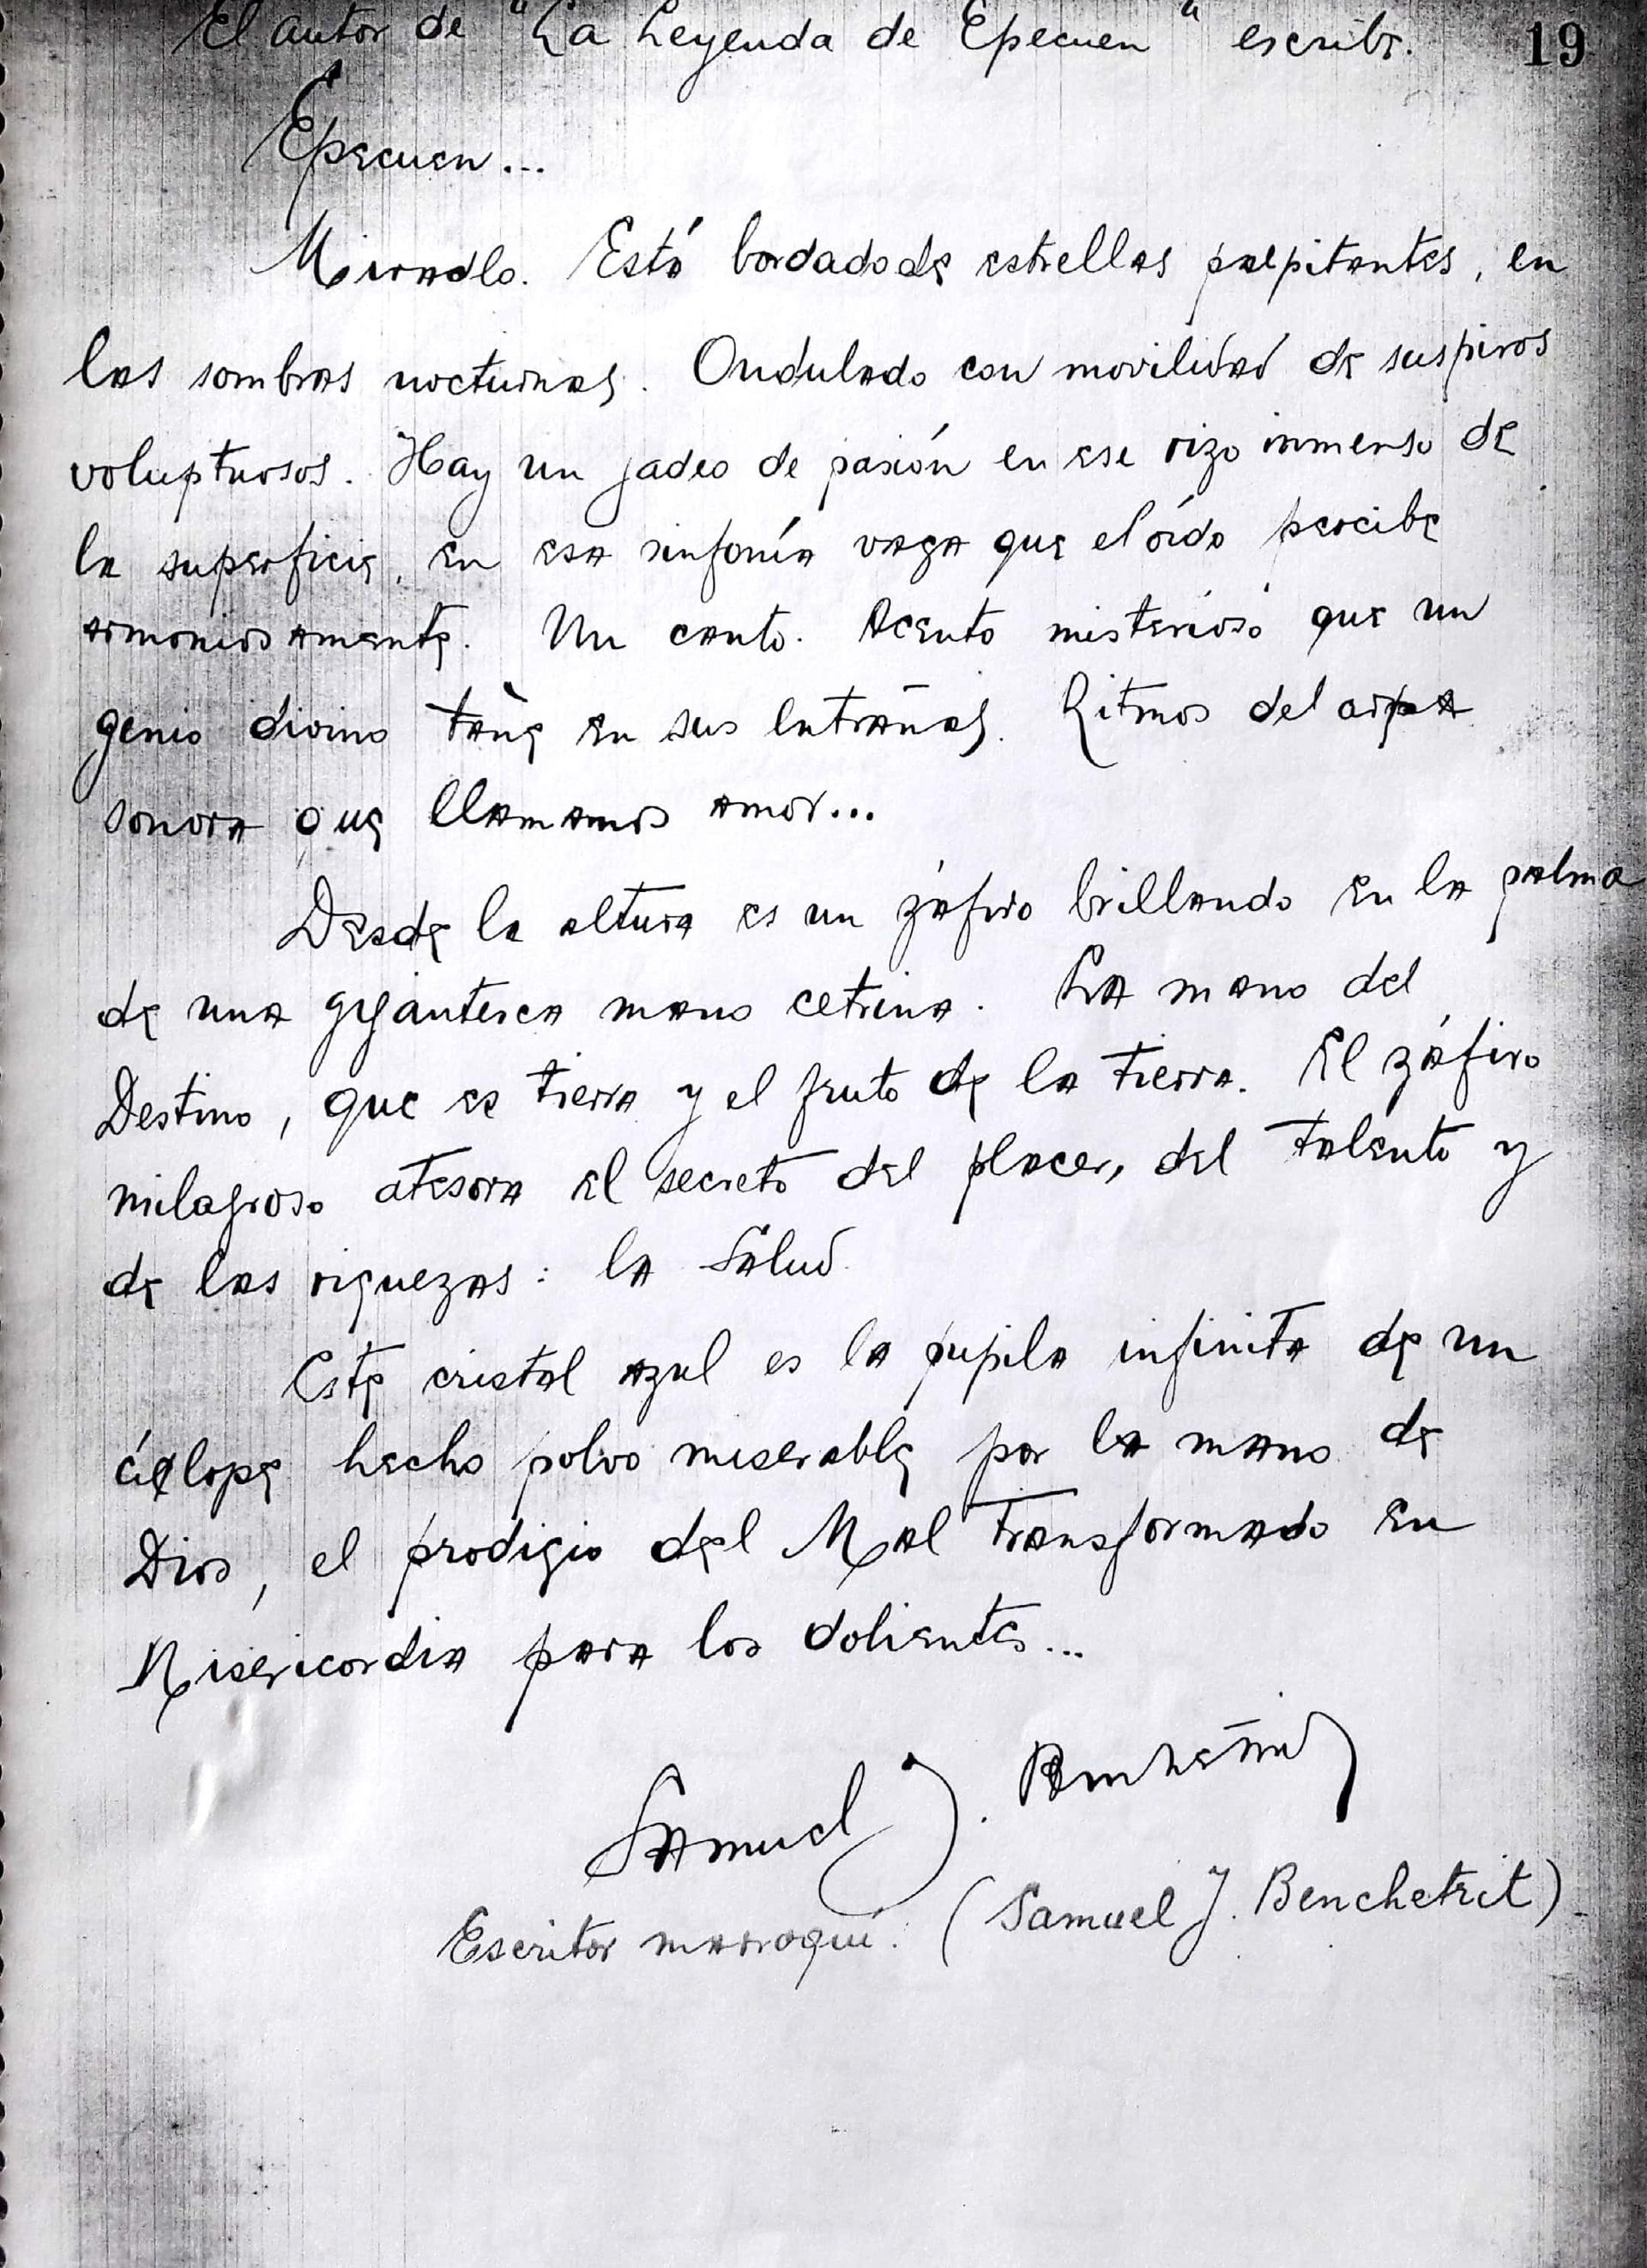 El autor de "La Leyenda de Epecuen" escribe. 19
Epecuen...
Miradlo. Está bordado de estrellas palpitantes, en
las sombras nocturnas. Ondulado con movilidad de suspiros
voluptuosos. Hay un jadeo de pasión en ese rizo inmenso de
la superficie, en esa sinfonía vaga que el oído percibe
armoniosamente. Un canto. Acento misterioso que un
genio divino tañe en sus entrañas. Ritmos del arpa
sonora que llamamos amor...
Desde la altura es un záfiro brillando en la palma
de una gigantesca mano cetrina. La mano del
Destino, que es tierra y el fruto de la tierra. El záfiro
milagroso atesora el secreto del placer, del talento y
de las riquezas: la Salud.
Este cristal azul es la pupila infinita de un
cíclope hecho polvo miserable por la mano de
Dios, el prodigio del Mal transformado en
Misericordia para los dolientes...
Samuel J. Benchetrit
Escritor marroquí. (Samuel J. Benchetrit)